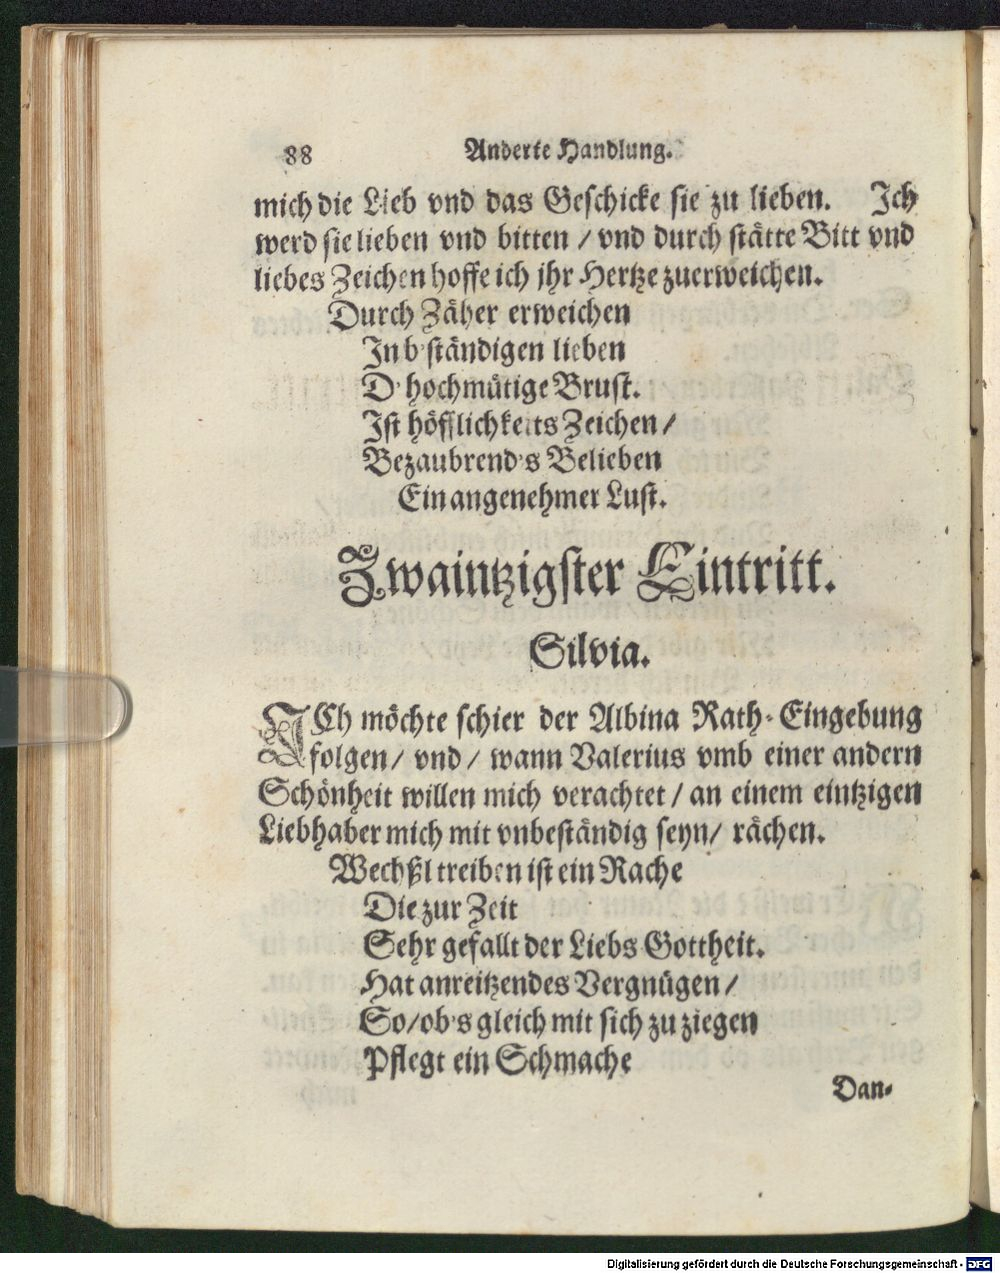 88 Anderte Handlung.
mich die Lieb vnd das Geschicke sie zu lieben. Ich
werd sie lieben vnd bitten / vnd durch stätte Bitt vnd
liebes Zeichen hoffe ich jhr Hertze zuerweichen.
Durch Zäher erweichen
In b'ständigen lieben
D' hochmütige Brust.
Ist höfflichkeits Zeichen /
Bezaubrend's Belieben
Ein angenehmer Lust.
Zwaintzigster Eintritt.
Silvia.
ICh möchte schier der Albina Rath-Eingebung
folgen / vnd / wann Valerius vmb einer andern
Schönheit willen mich verachtet / an einem eintzigen
Liebhaber mich mit vnbeständig seyn / rächen.
Wechßl treiben ist ein Rache
Die zur Zeit
Sehr gefallt der Liebs Gottheit.
Hat anreitzendes Vergnügen /
So / ob's gleich mit sich zu ziegen
Pflegt ein Schmache
Dan-
Digitalisierung gefördert durch die Deutsche Forschungsgemeinschaft - DFG